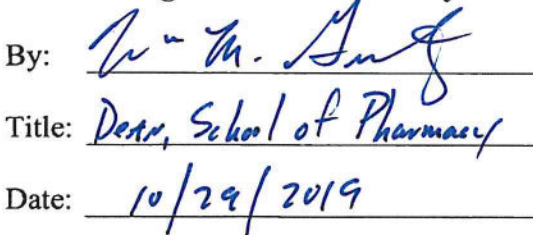 By: Wm M.
Title: Dean, School of Pharmacy
Date: 10/29/2019